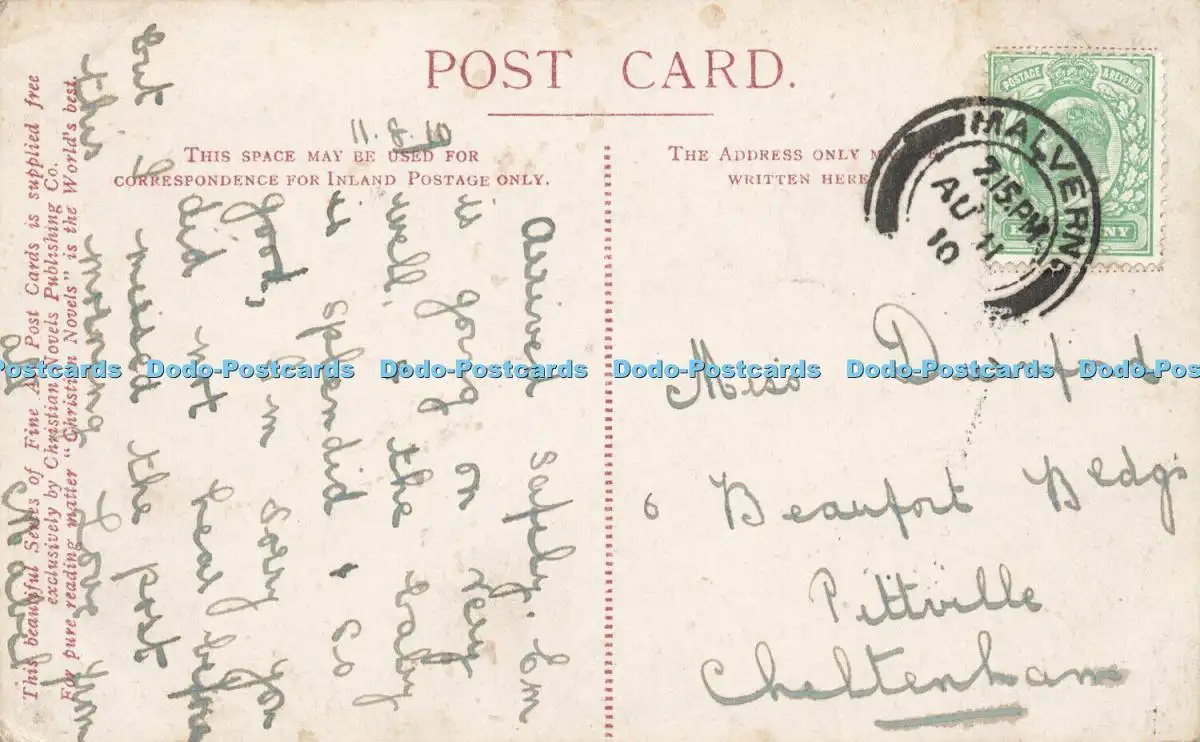 POST CARD.
THIS SPACE MAY BE USED FOR
CORRESPONDENCE FOR INLAND POSTAGE ONLY.
THE ADDRESS ONLY
WRITTEN HERE
POSTAGE & REVENUE
MALVERN
7.15.PM
AU 11
10
Miss Durnford
6 Beaufort Bldgs
Pittville
Cheltenham
11.8.
Arrived safely. Em
is going on very
well, & the baby
is splendid & so
good, I'm sorry you
did not hear before
but I missed the post
this morning Love from
This beautiful Series of Fine Art Post Cards is supplied free
exclusively by Christian Novels Publishing Co.
For pure reading matter "Christian Novels" is the World's best.
Dodo-Postcards Dodo-Postcards Dodo-Postcards Dodo-Postcards Dodo-Postcards